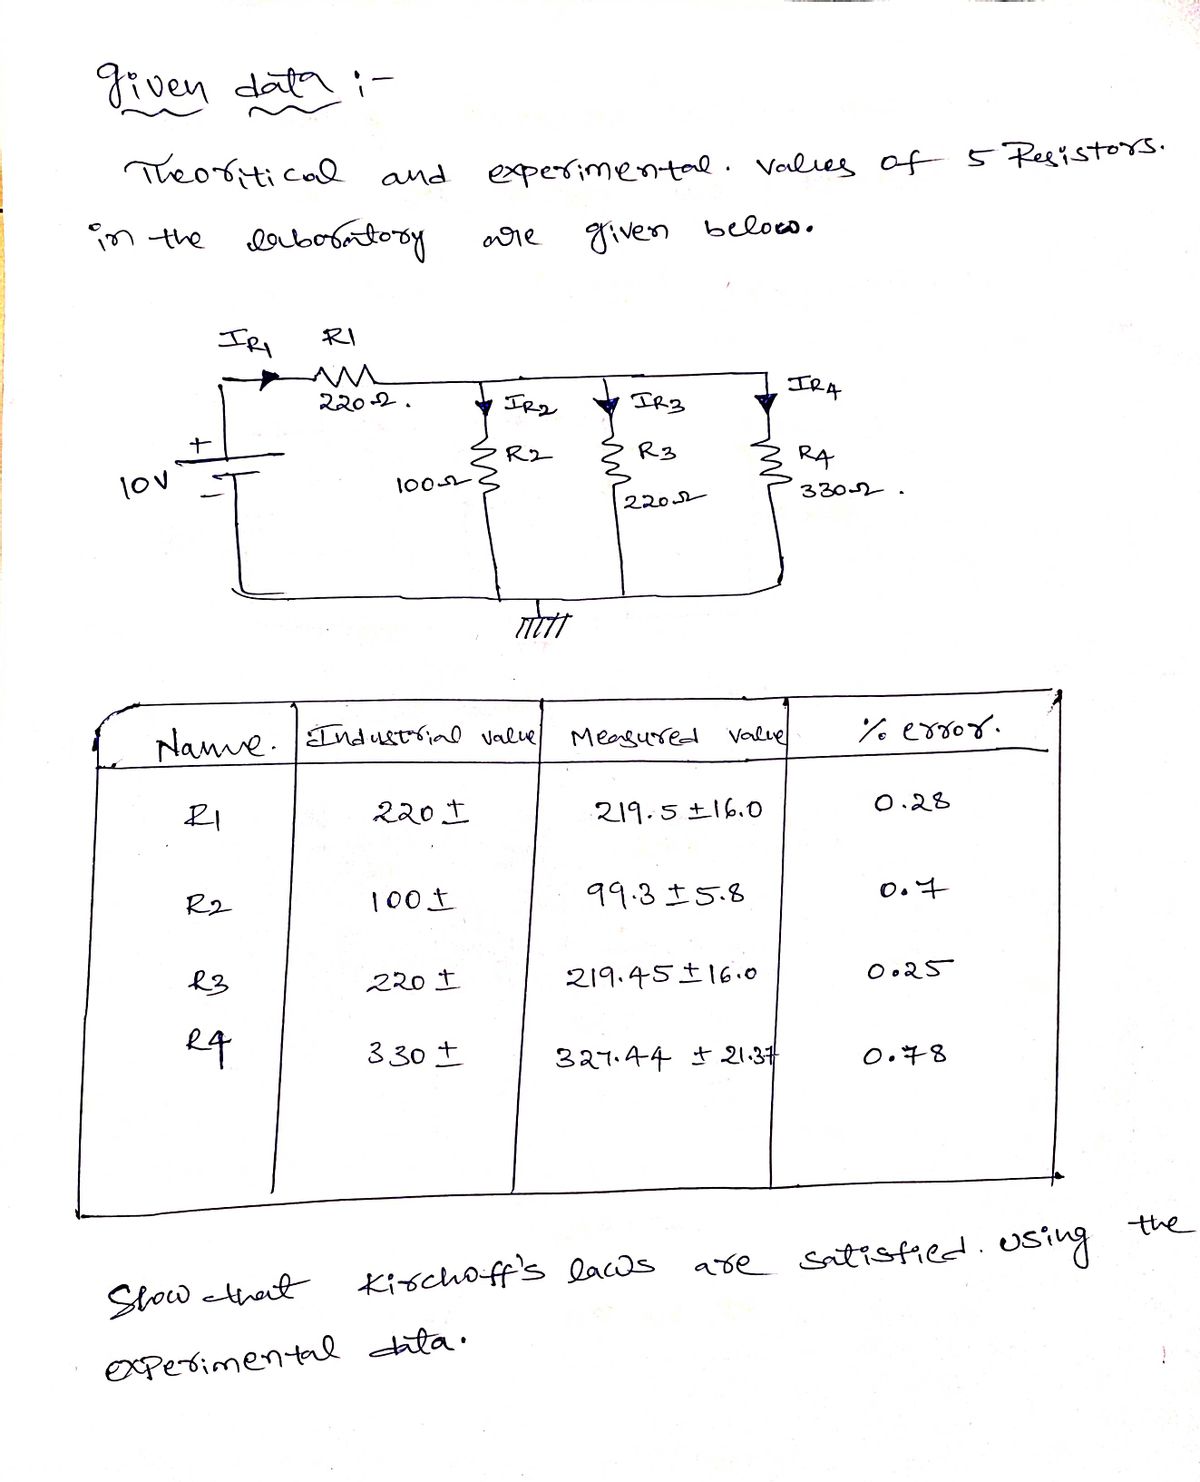 Given data :-
Theoritical and experimental. values of 5 Resistors.
in the laboratory are given below.
IR1 R1
220Ω.
IR2
IR3
IR4
+
10V
-
R2
100Ω
R3
220Ω
R4
330Ω.
Name. Industrial value Measured value % error.
R1 220 ± 219.5 ± 16.0 0.28
R2 100 ± 99.3 ± 5.8 0.7
R3 220 ± 219.45 ± 16.0 0.25
R4 330 ± 327.44 ± 21.37 0.78
Show that Kirchoff's laws are satisfied. using the
experimental data.